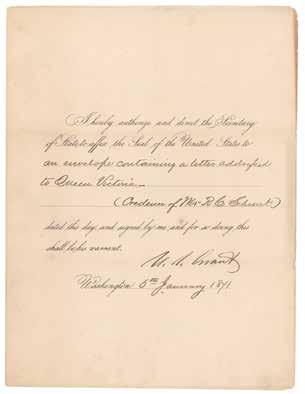 I hereby authorize and direct the Secretary
of State to affix the Seal of the United States to
an envelope containing a letter addressed
to Queen Victoria
(Credence of Mr. R. C. Schenck)
dated this day, and signed by me, and for so doing this
shall be his warrant.
U. S. Grant
Washington 5th January 1871.